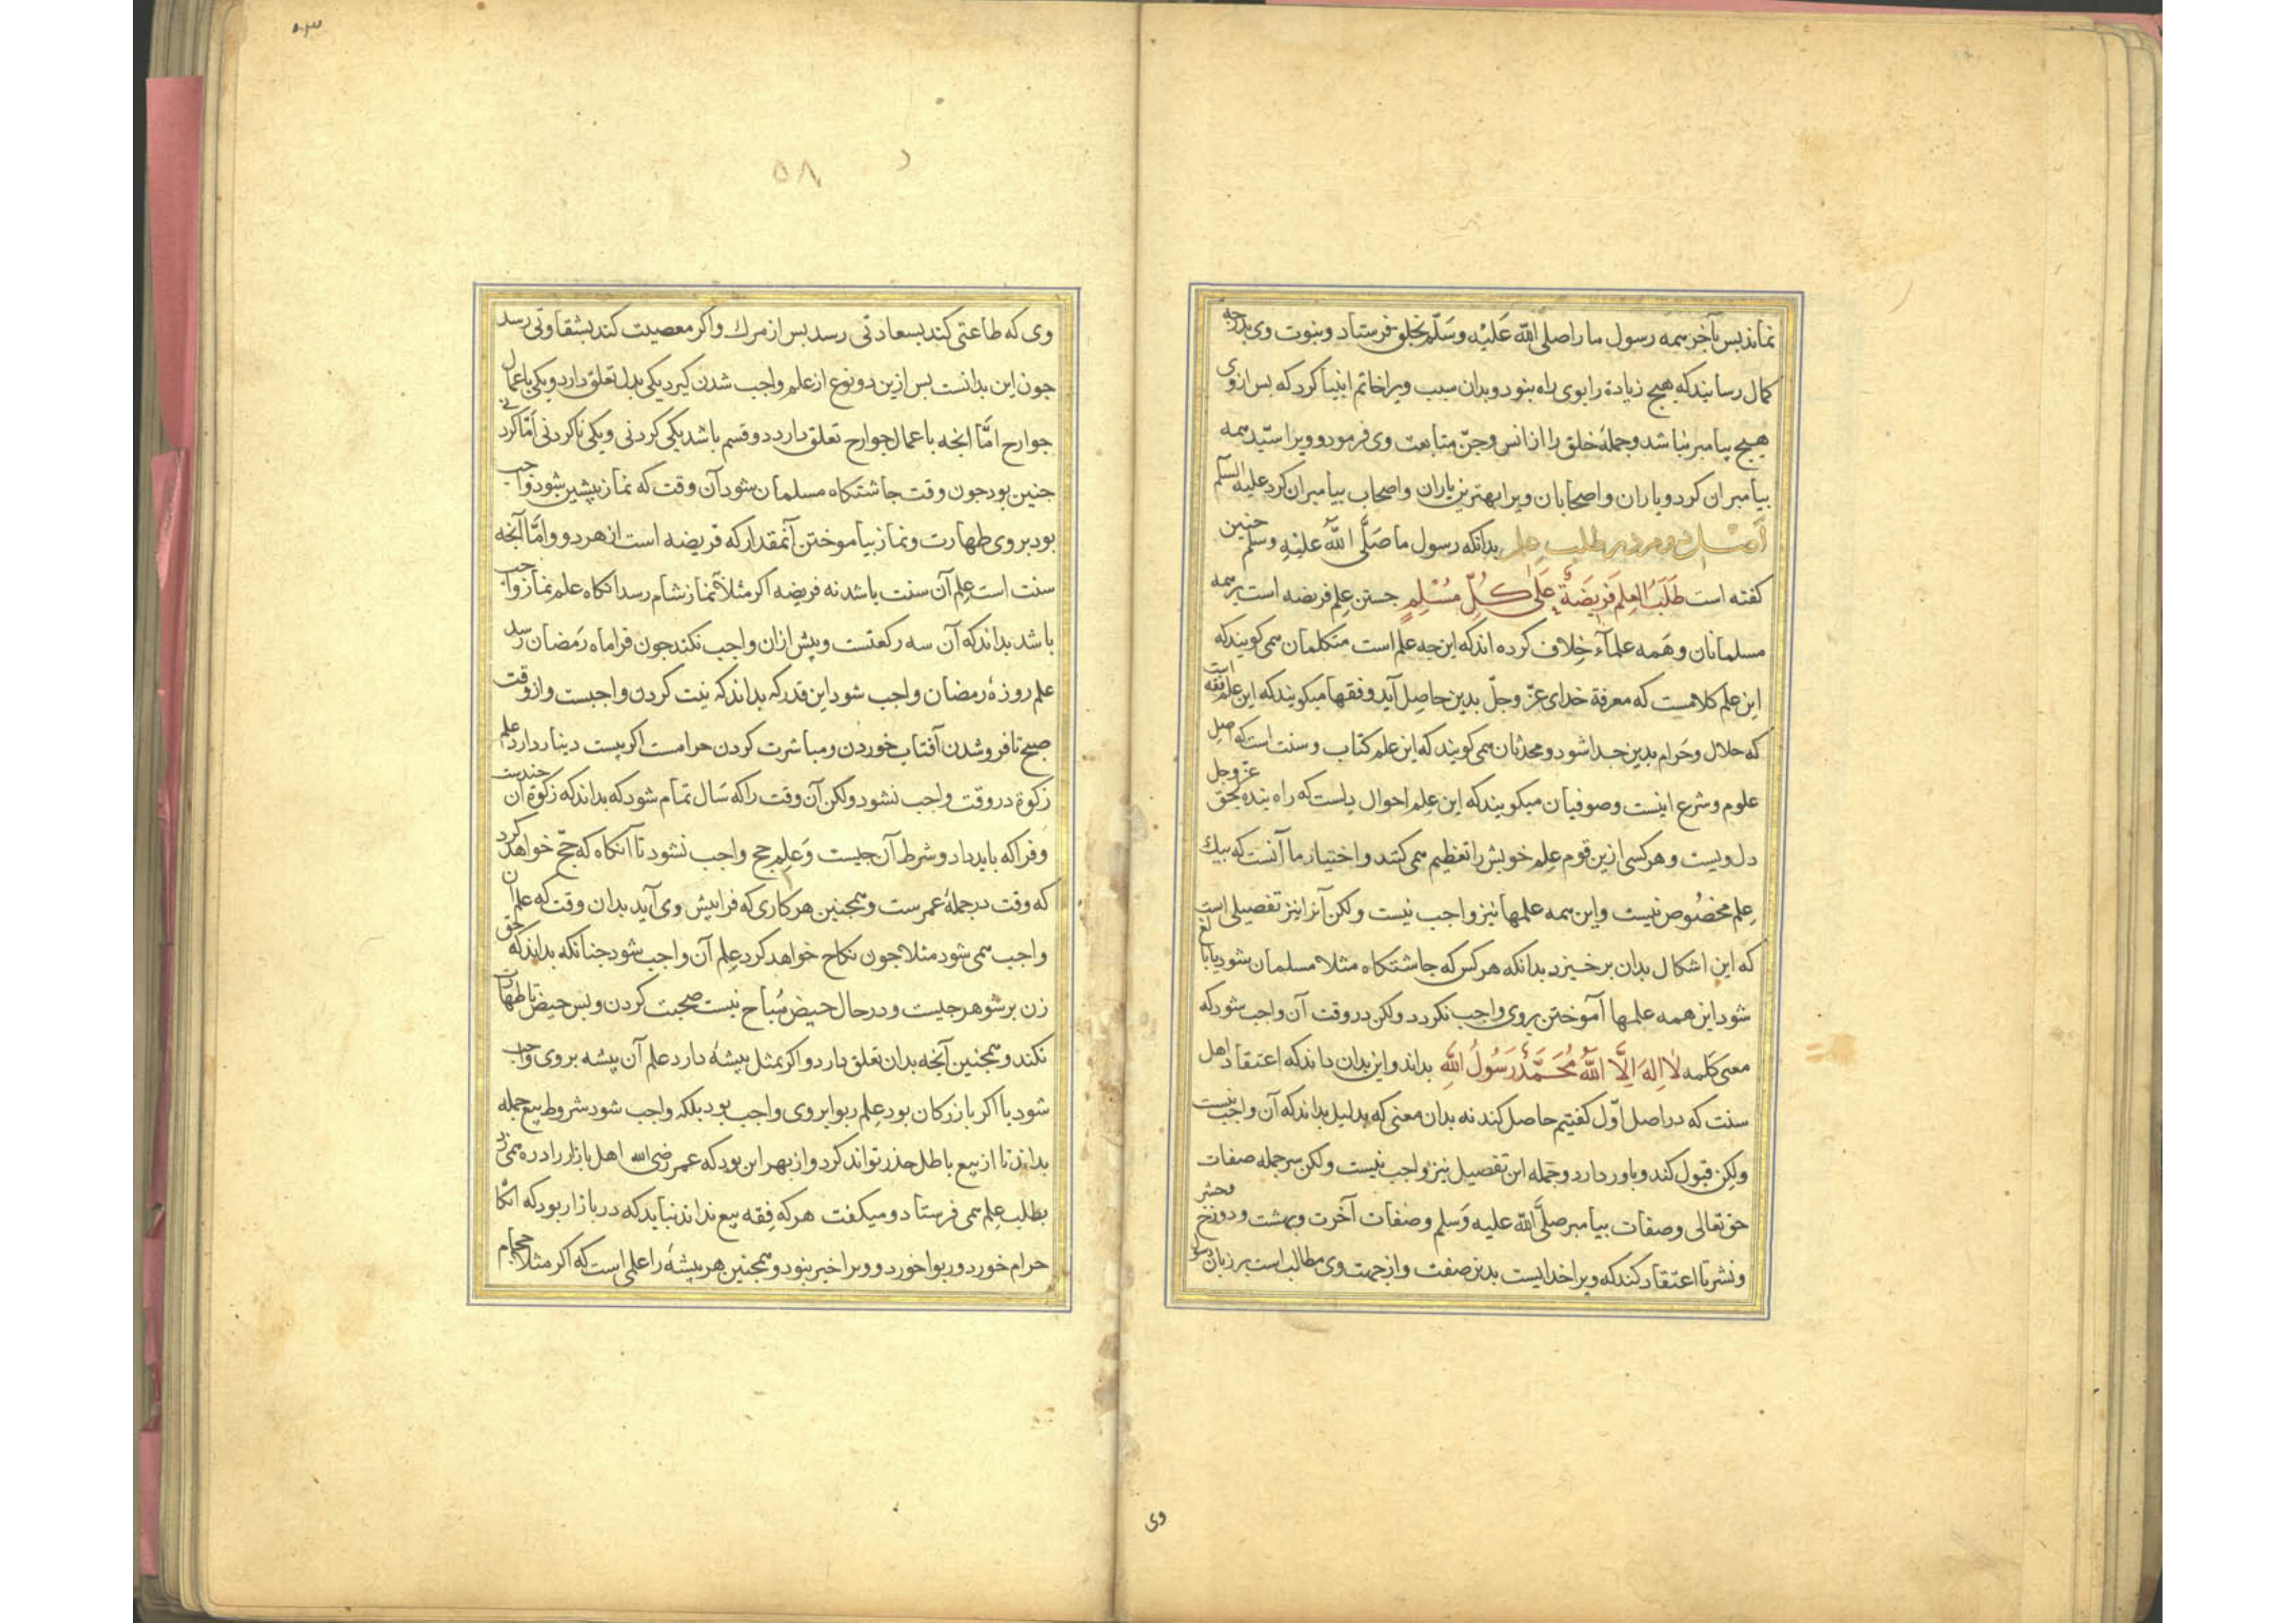 نماند پس بآخر همه رسول ما را صلی الله علیه وسلم بخلق فرستاد و نبوت وی بدرجه
کمال رسانید که هیچ زیادة را بوی راه نبود و بدان سبب ویرا خاتم انبیا کرد که بس از وی
هیچ پیامبر نباشد و جملهٔ خلق را از انس و جنّ متابعت وی فرمود و ویرا سیّد همه
بیامبران کرد و یاران و اصحابان ویرا بهترین یاران و اصحاب بیامبران کرد علیه السلم
اصل دوم در طلب علم بدانکه رسول ما صَلَّی اللهُ علیْهِ وسلم جنین
کفته است طَلَبُ العِلمِ فَرِیضَةٌ عَلَی کُلِّ مُسْلِمٍ جستن علم فریضه است بر همه
مسلمانان و همه علمآء خِلاف کرده اند که این جه علم است متکلمان همی کویند که
این علم کلامست که معرفة خدای عزّ وجلّ بدین حاصل آید و فقها میکویند که این علم فقه است
که حلال و حَرام بدین جدا شود و محدثان همی کویند که این علم کتاب و سنت است که اصل
علوم و شرع اینست و صوفیان میکویند که این علم احوال دلست که راه بنده بحق عز وجل
دل ویست و هر کسی ازین قوم عِلم خویش را تعظیم همی کنند و اختیار ما آنست که بیک
عِلم مخصُوص نیست و این همه علمها نیز واجب نیست ولکن آنرا نیز تفصیلی است
که این اشکال بدان برخیزد بدانکه هر کس که جاشتکاه مثلا مسلمان شود یا بالغ
شود این همه علمها آموختن بروی واجب نکردد ولکن در وقت آن واجب شود که
معنی کلمه لاٰ اِلهَ اِلَّا اللهُ مُحَمَّدٌ رَسُولُ اللهِ بداند و این بدان داند که اعتقاد اهل
سنت که در اصل اوّل کفتیم حاصل کند نه بدان معنی که بدلیل بداند که آن واجب نیست
ولکن قبول کند و باور دارد و جمله این تفصیل نیز واجب نیست ولکن سر جمله صفات
حق تعالی و صفات بیامبر صلَّی الله علیه وَسلم و صفات آخرت و بهشت و دوزخ و حشر
و نشر تا اعتقاد کند که ویرا خدایست بدین صفت و از جهت وی مطالب است بر زبان رسول
وی
وی که طاعتی کند بسعادتی رسد بس از مرك و اکر معصیت کند بشقاوتی رسد
جون این بدانست بس ازین دو نوع از علم واجب شدن کیرد یکی بدل تعلق دارد و یکی باعمال
جوارح امّا انجه باعمال جوارح تعلق دارد دو قسم باشد یکی کردنی و یکی ناکردنی امّا کردنی
جنین بود جون وقت جاشتکاه مسلمان شود آن وقت که نماز پیشین شود واجب
بود بروی طهارت و نماز بیاموختن آنمقدار که فریضه است از هر دو و امّا آنجه
سنت است علم آن سنت باشد نه فریضه اکر مثلاً نماز شام رسد انکاه علم نماز واجب
باشد بداند که آن سه رکعتست و بیش ازان واجب نکند جون فرا ماه رَمضان رسد
علم روزهٔ رمضان واجب شود این قدر که بداند که نیت کردن واجبست و از وقت
صبح تا فرو شدن آفتاب خوردن و مباشرت کردن حرامست اکر بیست دینار دارد علم
زکوة در وقت واجب نشود ولکن آن وقت را که سَال تمام شود که بداند که زکوة آن جندست
و فرا که باید داد و شرط آن جیست وَ علم حج واجب نشود تا آنکاه که حجّ خواهد کرد
که وقت در جملهٔ عمرست و همجنین هر کاری که فرا پیش وی آید بدان وقت که علم آن
واجب همی شود مثلا جون نکاح خواهد کرد عِلم آن واجب شود جنانکه بداند که حق
زن بر شوهر جیست و در حال حیض مُباح نیست صحبت کردن و بس حیض تا طهارت
نکند و همجنین آنجه بدان تعلق دارد و اکر بمثل پیشهٔ دارد علم آن پیشه بروی واجب
شود تا اکر بازرکان بود علم ربوا بر وی واجب بود بلکه واجب شود شروط بیع جمله
بداند تا از بیع باطل حذر تواند کرد و از بهر این بود که عمر رضی الله اهل بازار را دره همی زد
بطلب عِلم همی فرستاد و میکفت هر که فِقه بیع نداند نباید که در بازار بود که انکاه
حرام خورد و ربوا خورد و ویرا خبر نبود و همجنین هر پیشهٔ را علمی است که اکر مثلا حجام
۵۸